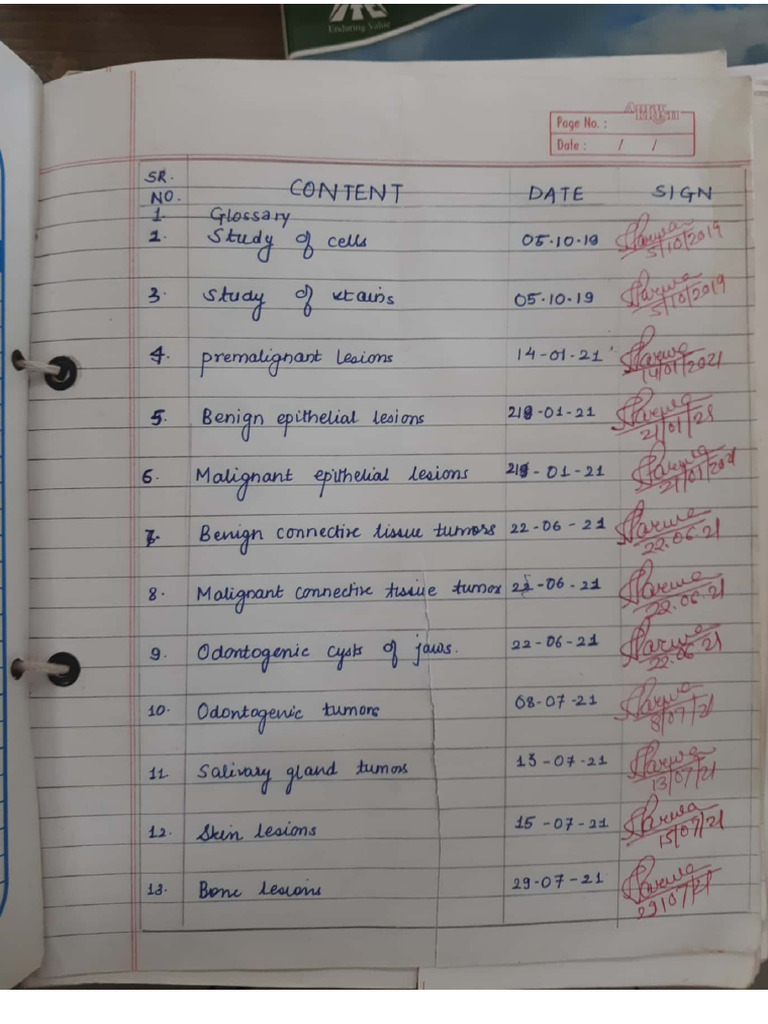 Enduring Value
Page No. :
Date : / /
SR. NO. CONTENT DATE SIGN
1. Glossary
2. Study of cells 05.10.19 5/10/2019
3. Study of stains 05.10.19 5/10/2019
4. premalignant lesions 14-01-21 14/01/2021
5. Benign epithelial lesions 21-01-21 21/01/21
6. Malignant epithelial lesions 21-01-21 21/01/2021
7. Benign connective tissue tumors 22-06-21 22.06.21
8. Malignant connective tissue tumor 22-06-21 22.06.21
9. Odontogenic cysts of jaws. 22-06-21 22.06.21
10. Odontogenic tumors 08-07-21 8/07/21
11. Salivary gland tumors 13-07-21 13/07/21
12. Skin lesions 15-07-21 15/07/21
13. Bone lesions 29-07-21 29/07/21